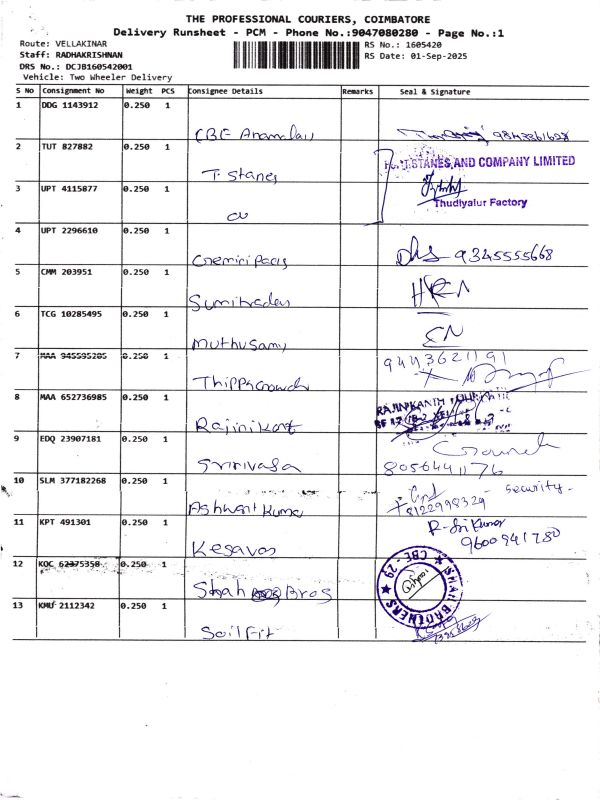 THE PROFESSIONAL COURIERS, COIMBATORE
Delivery Runsheet - PCM - Phone No.:9047080280 - Page No.:1
Route: VELLAKINAR
RS No.: 1605420
Staff: RADHAKRISHNAN
RS Date: 01-Sep-2025
DRS No.: DCJB160542001
Vehicle: Two Wheeler Delivery
S No Consignment No Weight PCS Consignee Details Remarks Seal & Signature
1 DDG 1143912 0.250 1
CBE 9843361628
2 TUT 827882 0.250 1
T. Stanes T.STANES AND COMPANY LIMITED
3 UPT 4115877 0.250 1
Thudiyalur Factory
4 UPT 2296610 0.250 1
9345555668
5 CMM 203951 0.250 1
6 TCG 10285495 0.250 1
Muthusamy
7 MAA 945595205 0.250 1
9443621191
8 MAA 652736985 0.250 1
Rajinikant RAJINIKANTH
9 EDQ 23907181 0.250 1
Srinivasa 8056441176
10 SLM 377182268 0.250 1
security
Ashwant Kumar 8122998329
11 KPT 491301 0.250 1
R-Sri Kumar
Kesavos 9600941780
12 KOC 62375358 0.250 1
Shah Bros SHAH BROTHERS CBE - 29
13 KMU 2112342 0.250 1
Soilfit